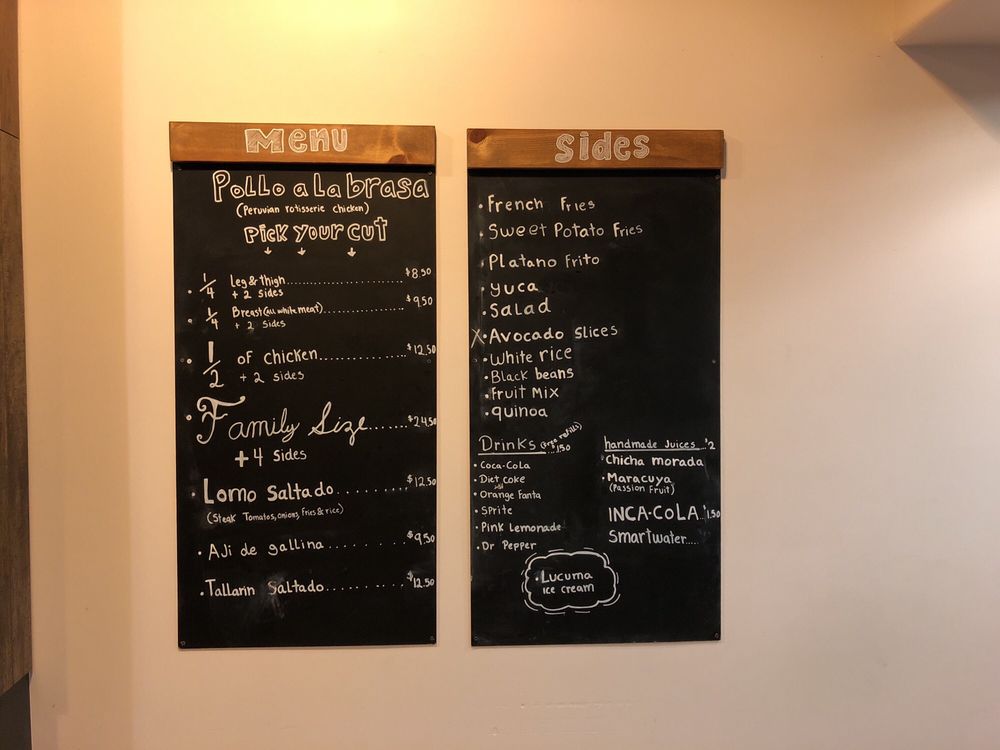 Menu
Pollo a La brasa
(Peruvian rotisserie chicken)
Pick your cut
1/4 Leg & thigh.......................... $8.50
+ 2 sides
1/4 Breast (All white meat).................. $9.50
+ 2 sides
1/2 of chicken.................. $12.50
+ 2 sides
Family Size....... $24.50
+4 sides
Lomo Saltado......... $12.50
(Steak Tomatoes, onions, fries & rice)
Aji de gallina.......... $9.50
Tallarin Saltado.......... $12.50
Sides
French Fries
Sweet Potato Fries
Platano Frito
yuca
Salad
X Avocado Slices
White rice
Black beans
Fruit Mix
quinoa
Drinks (free refills) ... $1.50
Coca-Cola
Diet Coke
Orange Fanta
Sprite
Pink Lemonade
Dr Pepper
handmade Juices...$2
chicha morada
Maracuya
(Passion Fruit)
INCA-COLA..$1.50
Smartwater.....
Lucuma
ice cream